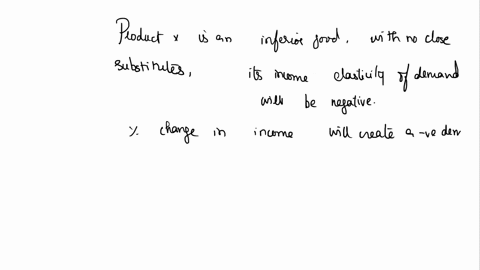 Product x is an inferior good, with no close
substitutes, its income elasticity of demand
will be negative.
% change in income will create a -ve dem